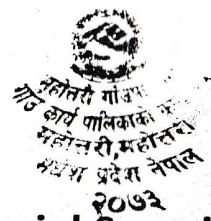 महोत्तरी गाँउपा
गाँउ कार्य पालिकाको
महोत्तरी, महोत्तरी
मधेश प्रदेश नेपाल
२०७३